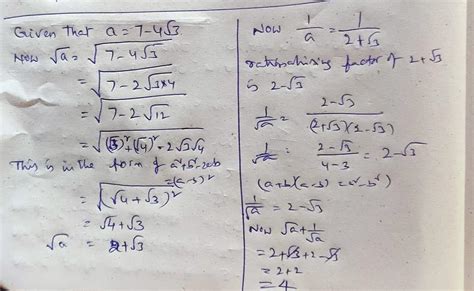 Given that a = 7-4√3
Now √a = √(7-4√3)
= √(7-2√3×4)
= √(7-2√12)
= √((√3)²+(√4)²-2√3√4)
This is in the form of a²+b²-2ab
=(a-b)²
= √((√4+√3)²)
= √4+√3
√a = 2+√3
Now 1/a = 1/(2+√3)
rationalising factor of 2+√3
is 2-√3
1/√a = (2-√3)/((2+√3)(2-√3))
1/√a = (2-√3)/(4-3) = 2-√3
(a+b)(a-b) = a²-b²)
1/√a = 2-√3
Now √a+1/√a
= 2+√3+2-√3
= 2+2
= 4